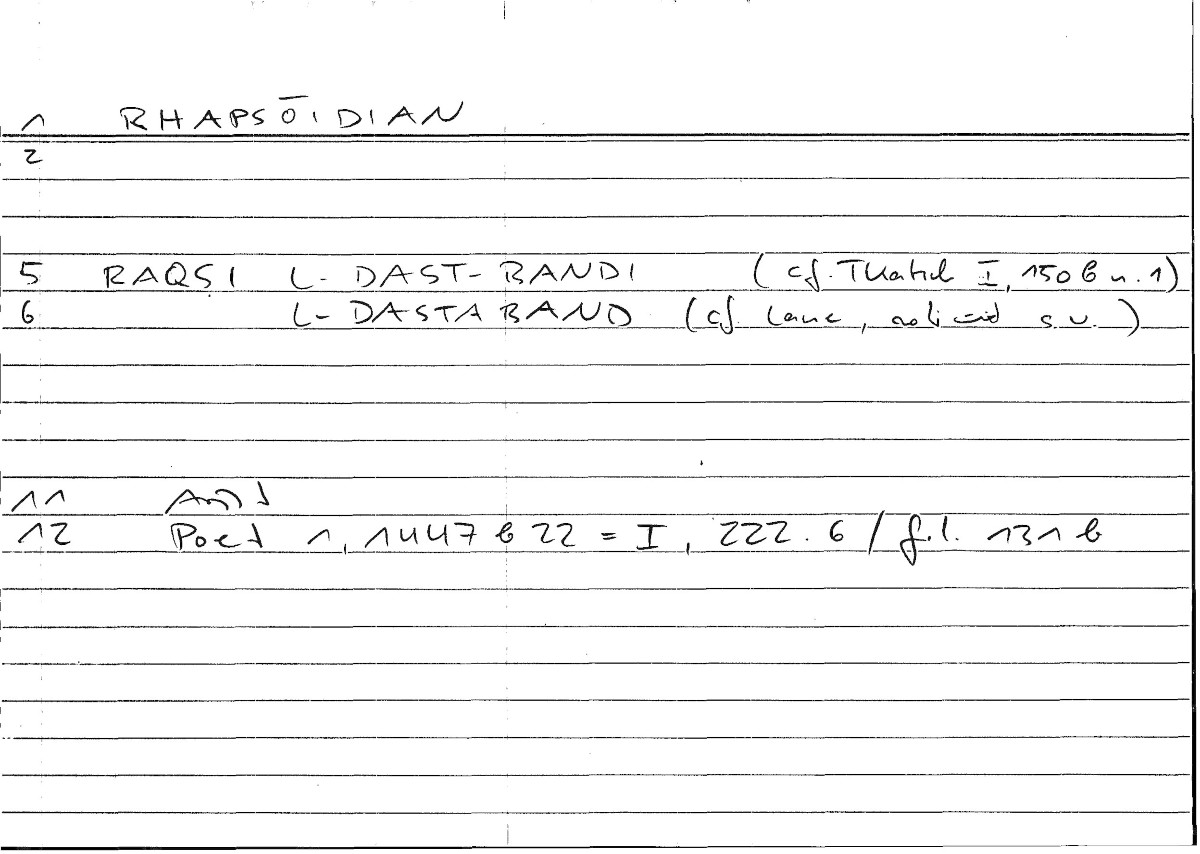 1 RHAPSŌIDIAN
2
5 RAQSI L-DAST-BANDI (cf. Tkatsch I, 150 b n. 1)
6 L-DASTABAND (cf. Lane, s.v.)
11 Arist
12 Poet 1, 1447 b 22 = I, 222.6 / f.l. 131 b